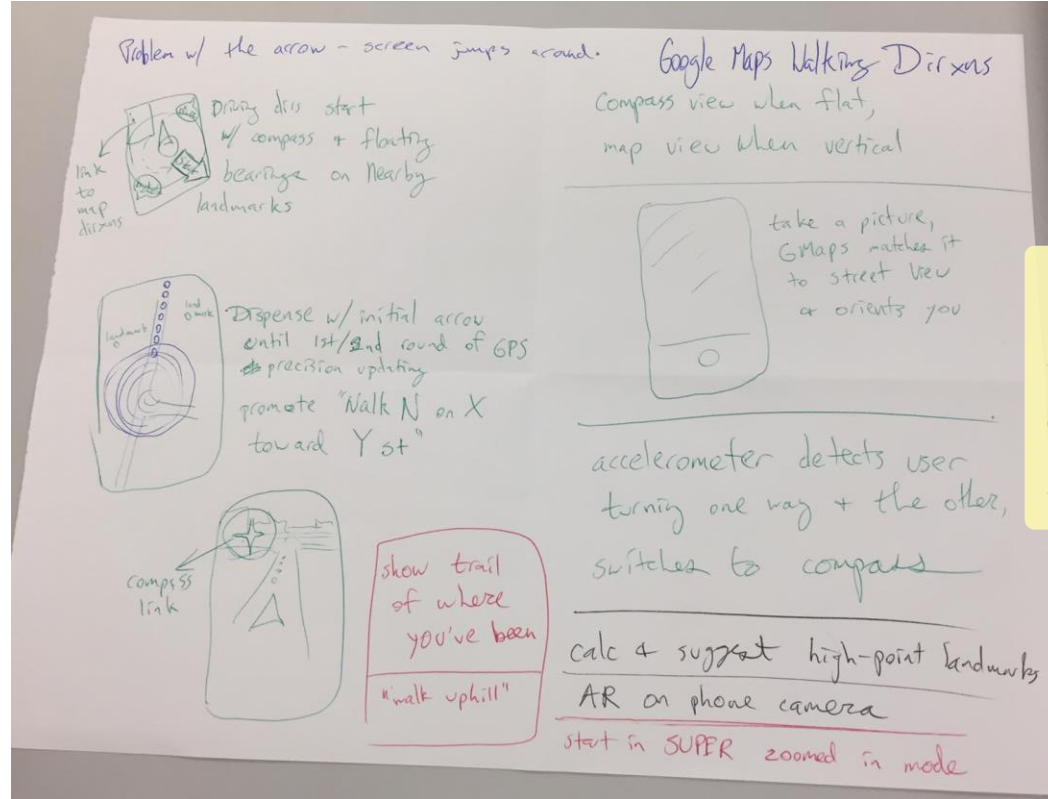 Problem w/ the arrow - screen jumps around.
Google Maps Walking Dirxns
Driving dirs start
w/ compass + floating
bearings on Nearby
landmarks
link
to
map
dirxns
Dispense w/ initial arrow
until 1st/2nd round of GPS
precision updating
promote "Walk N on X
toward Y st"
landmark
land
mark
compass
link
show trail
of where
you've been
"walk uphill"
Compass view when flat,
map view when vertical
take a picture,
GMaps matches it
to street view
& orients you
accelerometer detects user
turning one way + the other,
switches to compass
calc & suggest high-point landmarks
AR on phone camera
start in SUPER zoomed in mode